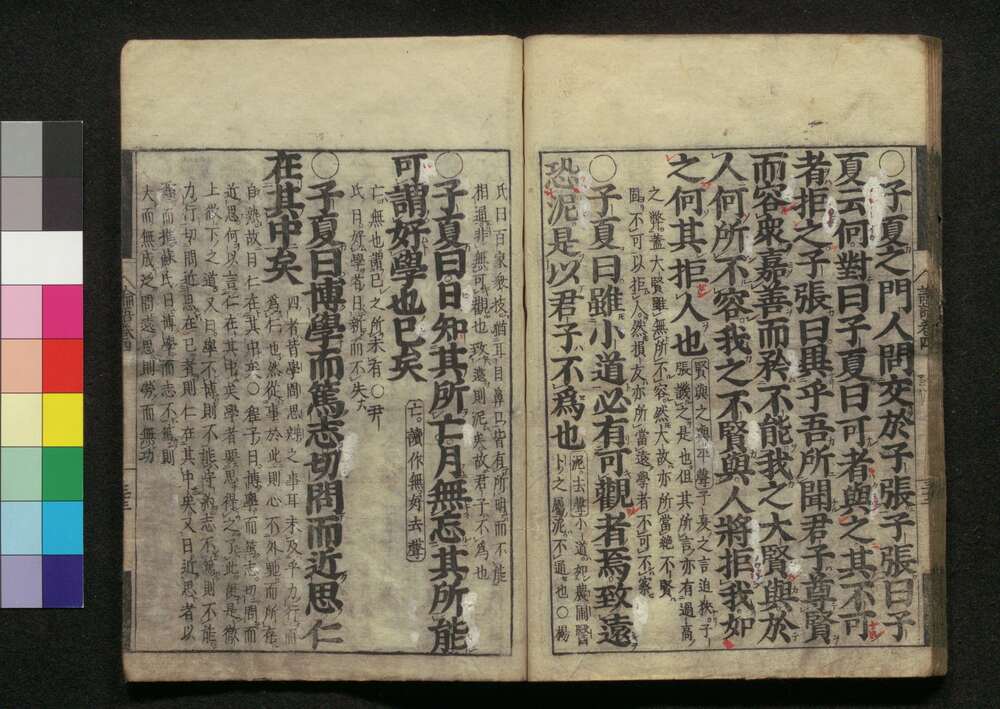 ○子夏之門人問交於子張子張曰子
夏云何對曰子夏曰可者與之其不可
者拒之子張曰異乎吾所聞君子尊賢
而容衆嘉善而矜不能我之大賢與於
人何所不容我之不賢與人將拒我如
之何其拒人也
賢與之與平聲子夏之言迫狹子
張譏之是也但其所言亦有過高
之弊蓋大賢雖無所不容然大故亦所當絶不賢
固不可以拒人然損友亦所當遠學者不可不察
○子夏曰雖小道必有可觀者焉致遠
恐泥是以君子不爲也
泥去聲小道如農圃醫
卜之屬泥不通也○楊
氏曰百家衆技猶耳目鼻口皆有所明而不能
相通非無可觀也致遠則泥矣故君子不爲也
○子夏曰日知其所亡月無忘其所能
可謂好學也已矣
亡讀作無好去聲
亡無也謂已之所未有○尹
氏曰好學者日新而不失
○子夏曰博學而篤志切問而近思仁
在其中矣
四者皆學問思辨之事耳未及乎力行而
爲仁也然從事於此則心不外馳而所存
自熟故曰仁在其中矣○程子曰博學而篤志切問而
近思何以言仁在其中矣學者要思得之了此便是徹
上徹下之道又曰學不博則不能守約志不篤則不能
力行切問近思在已者則仁在其中矣又曰近思者以
類而推蘇氏曰博學而志不篤則
大而無成泛問遠思則勞而無功